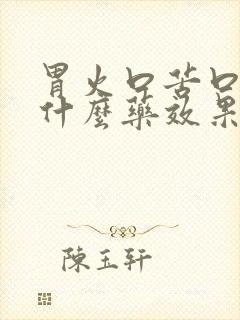 胃火口苦口
什麼藥效果
陳玉軒